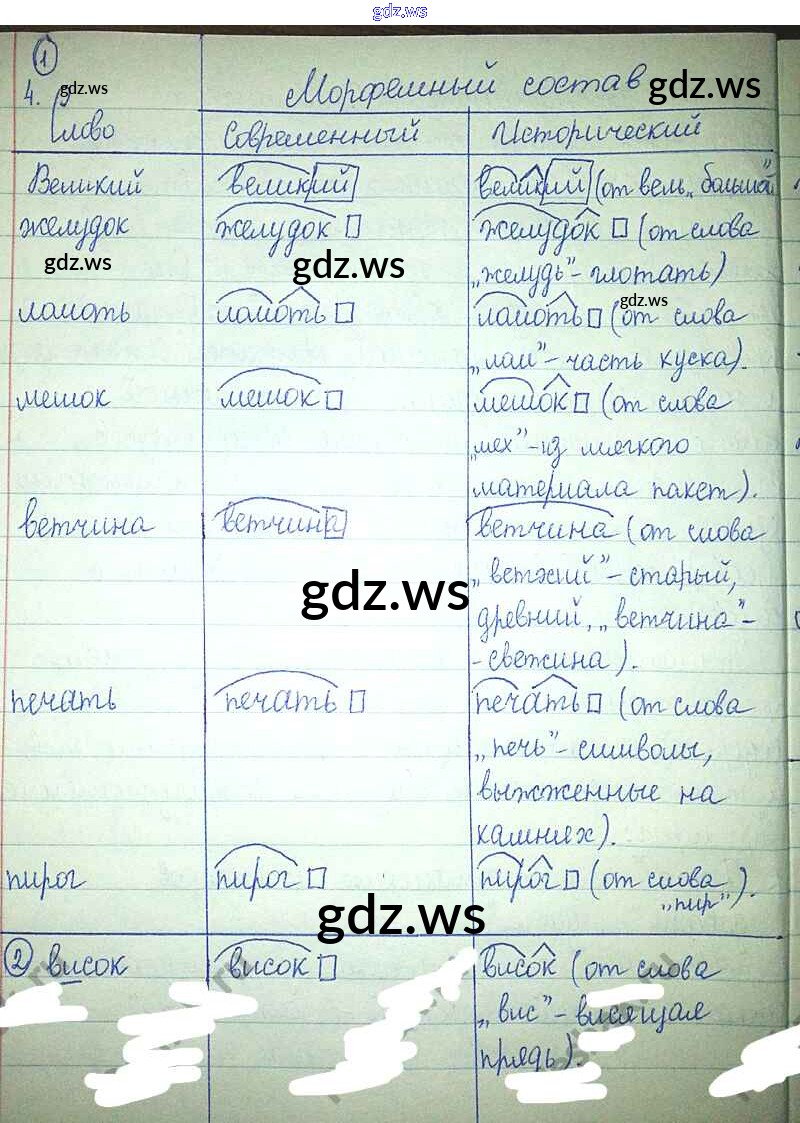 gdz.ws
1
4.
Слово
Морфемный состав
gdz.ws
gdz.ws
Современный
Исторический
Великий
великий
великий (от вель „большой"
желудок
желудок
желудок (от слова
gdz.ws
gdz.ws
„желудь"- глотать)
gdz.ws
ломоть
ломоть
ломоть (от слова
„лом"-часть куска).
мешок
мешок
мешок (от слова
„мех"-из мягкого
материала пакет).
ветчина
ветчина
ветчина (от слова
gdz.ws
„ветхий"-старый,
древний, „ветчина"-
-свежина).
печать
печать
печать (от слова
„печь"-символы,
выжженные на
камнях).
пирог
пирог
пирог (от слова
„пир").
gdz.ws
2 висок
висок
висок (от слова
„вис"-висящая
прядь).